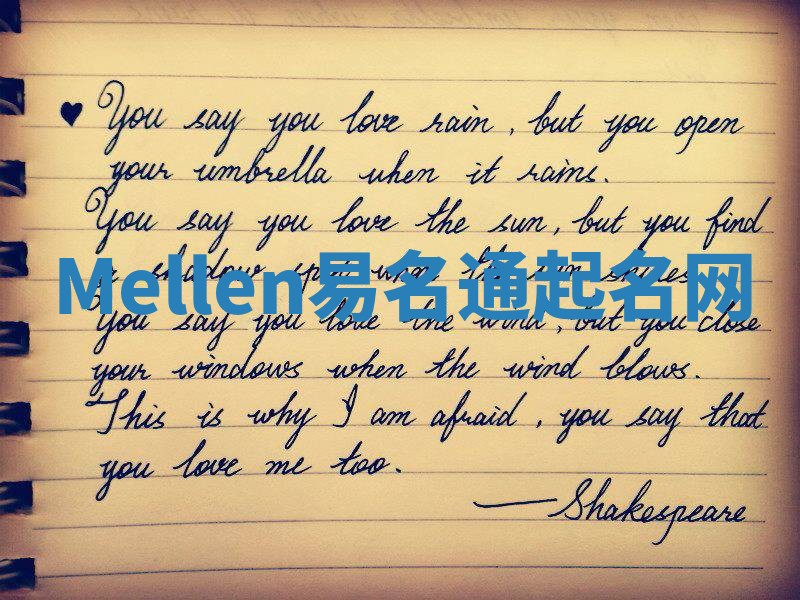 ♥ You say you love rain, but you open
your umbrella when it rains.
You say you love the sun, but you find
a shadow spot when the sun shines.
Mellen易名通起名网
You say you love the wind, but you close
your windows when the wind blows.
This is why I am afraid, you say that
you love me too.
—Shakespeare